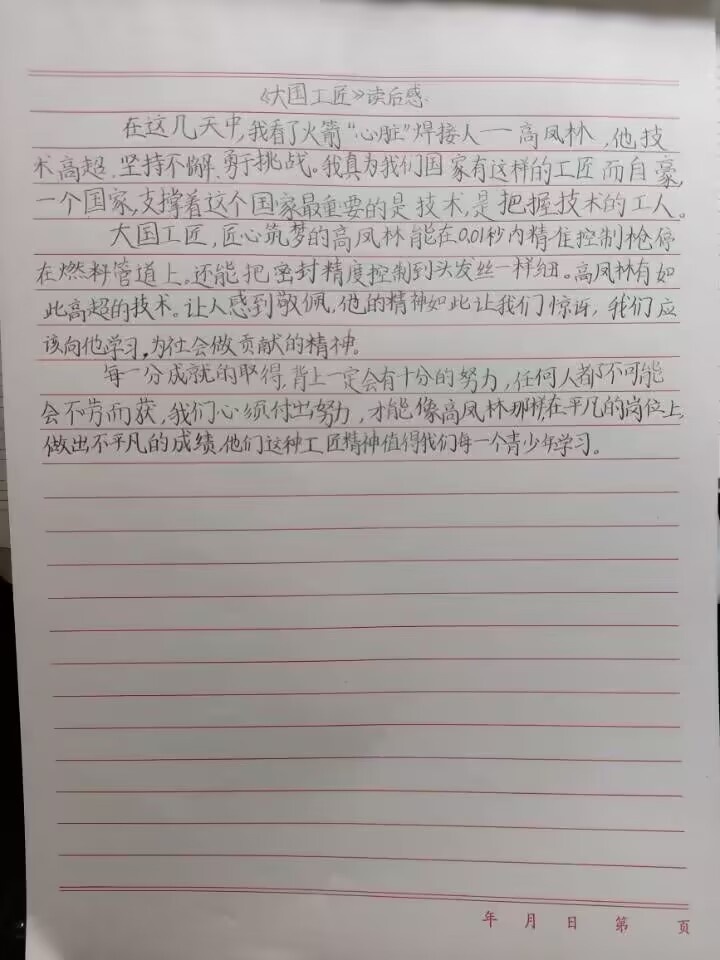 《大国工匠》读后感.
在这几天中,我看了火箭“心脏”焊接人—高凤林,他技
术高超、坚持不懈、勇于挑战。我真为我们国家有这样的工匠而自豪,
一个国家,支撑着这个国家最重要的是技术,是把握技术的工人。
大国工匠,匠心筑梦的高凤林能在0.01秒内精准控制枪停
在燃料管道上。还能把密封精度控制到头发丝一样细。高凤林有如
此高超的技术。让人感到敬佩,他的精神如此让我们惊讶,我们应
该向他学习,为社会做贡献的精神。
每一分成就的取得,背上一定会有十分的努力,任何人都不可能
会不劳而获,我们心须付出努力,才能像高凤林那样,在平凡的岗位上,
做出不平凡的成绩,他们这种工匠精神值得我们每一个青少年学习。
年 月 日 第 页